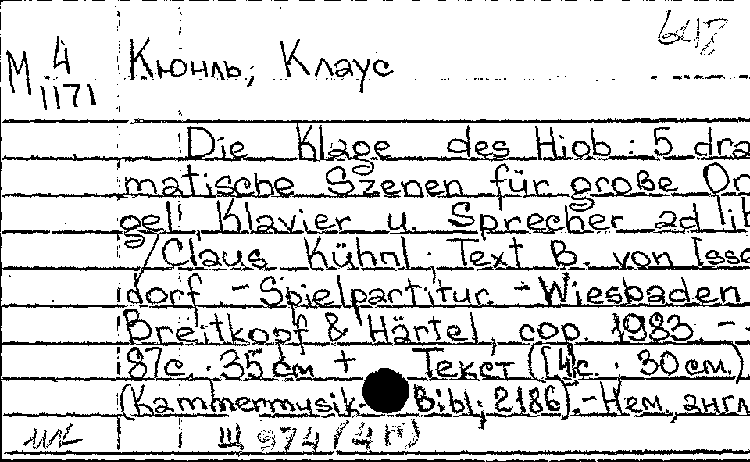 М 4 Кюнль, Клаус
1171
Die Klage des Hiob : 5 dra
matische Szenen für große Or
gel, Klavier u. Sprecher ad lib
/ Claus Kühnl ; Text B. von Isse
dorf. - Spielpartitur. - Wiesbaden
Breitkopf & Härtel, cop. 1983. -
87с. ; 35 см + Текст ([4]с. ; 30 см.)
(Kammermusik- Bibl.; 2186). - Нем., англ